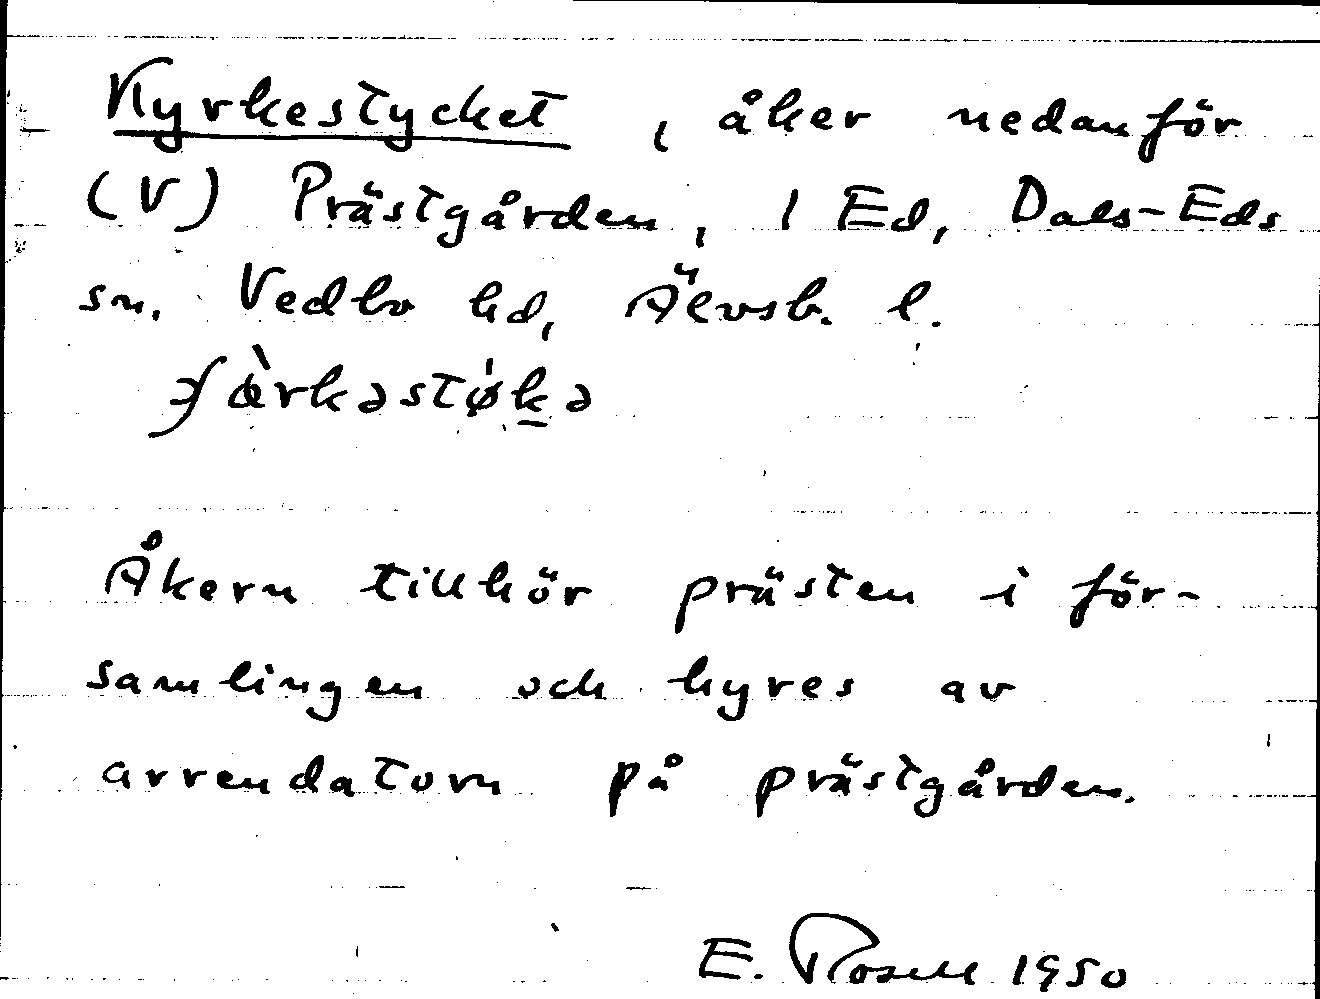 Kyrkestycket, åker nedanför
(V) Prästgården, 1 Ed, Dals-Eds
sn. Vedbo hd, Älvsb. l.
Åkern tillhör prästen i för-
samlingen och hyres av
arrendatorn på prästgården.
E. Rosell 1950